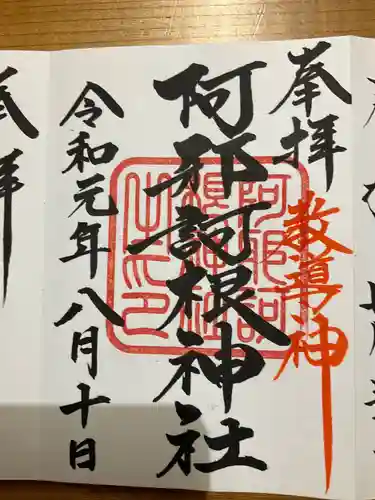 奉拝
教導神
阿邪訶根神社
令和元年八月十日
奉拝